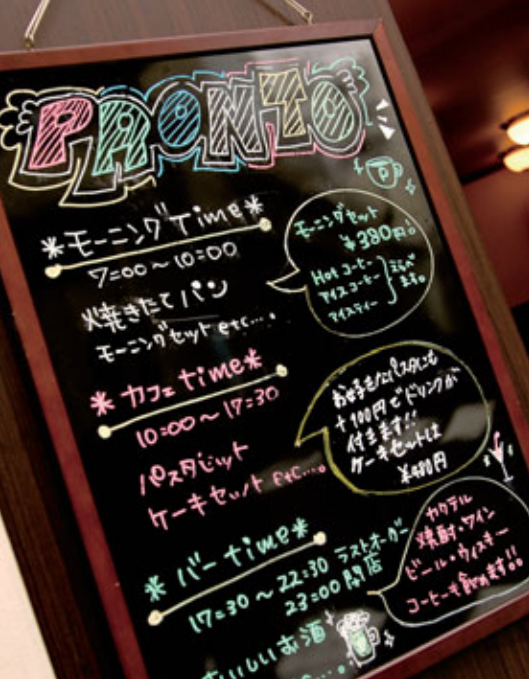 PRONTO
*モーニングTime*
7:00～10:00
焼きたてパン
モーニングセット etc....
モーニングセット
¥380円!!
Hot コーヒー
アイスコーヒー
アイスティー
えらべ
ます。
*カフェ time*
10:00～17:30
パスタセット
ケーキセット etc....
お好きなパスタにも
+100円でドリンクが
付きます!!
ケーキセットは
¥480円
*バー time*
17:30～22:30 ラストオーダー
23:00 閉店
おいしいお酒
カクテル
焼酎・ワイン
ビール・ウィスキー
コーヒーも飲めます!!